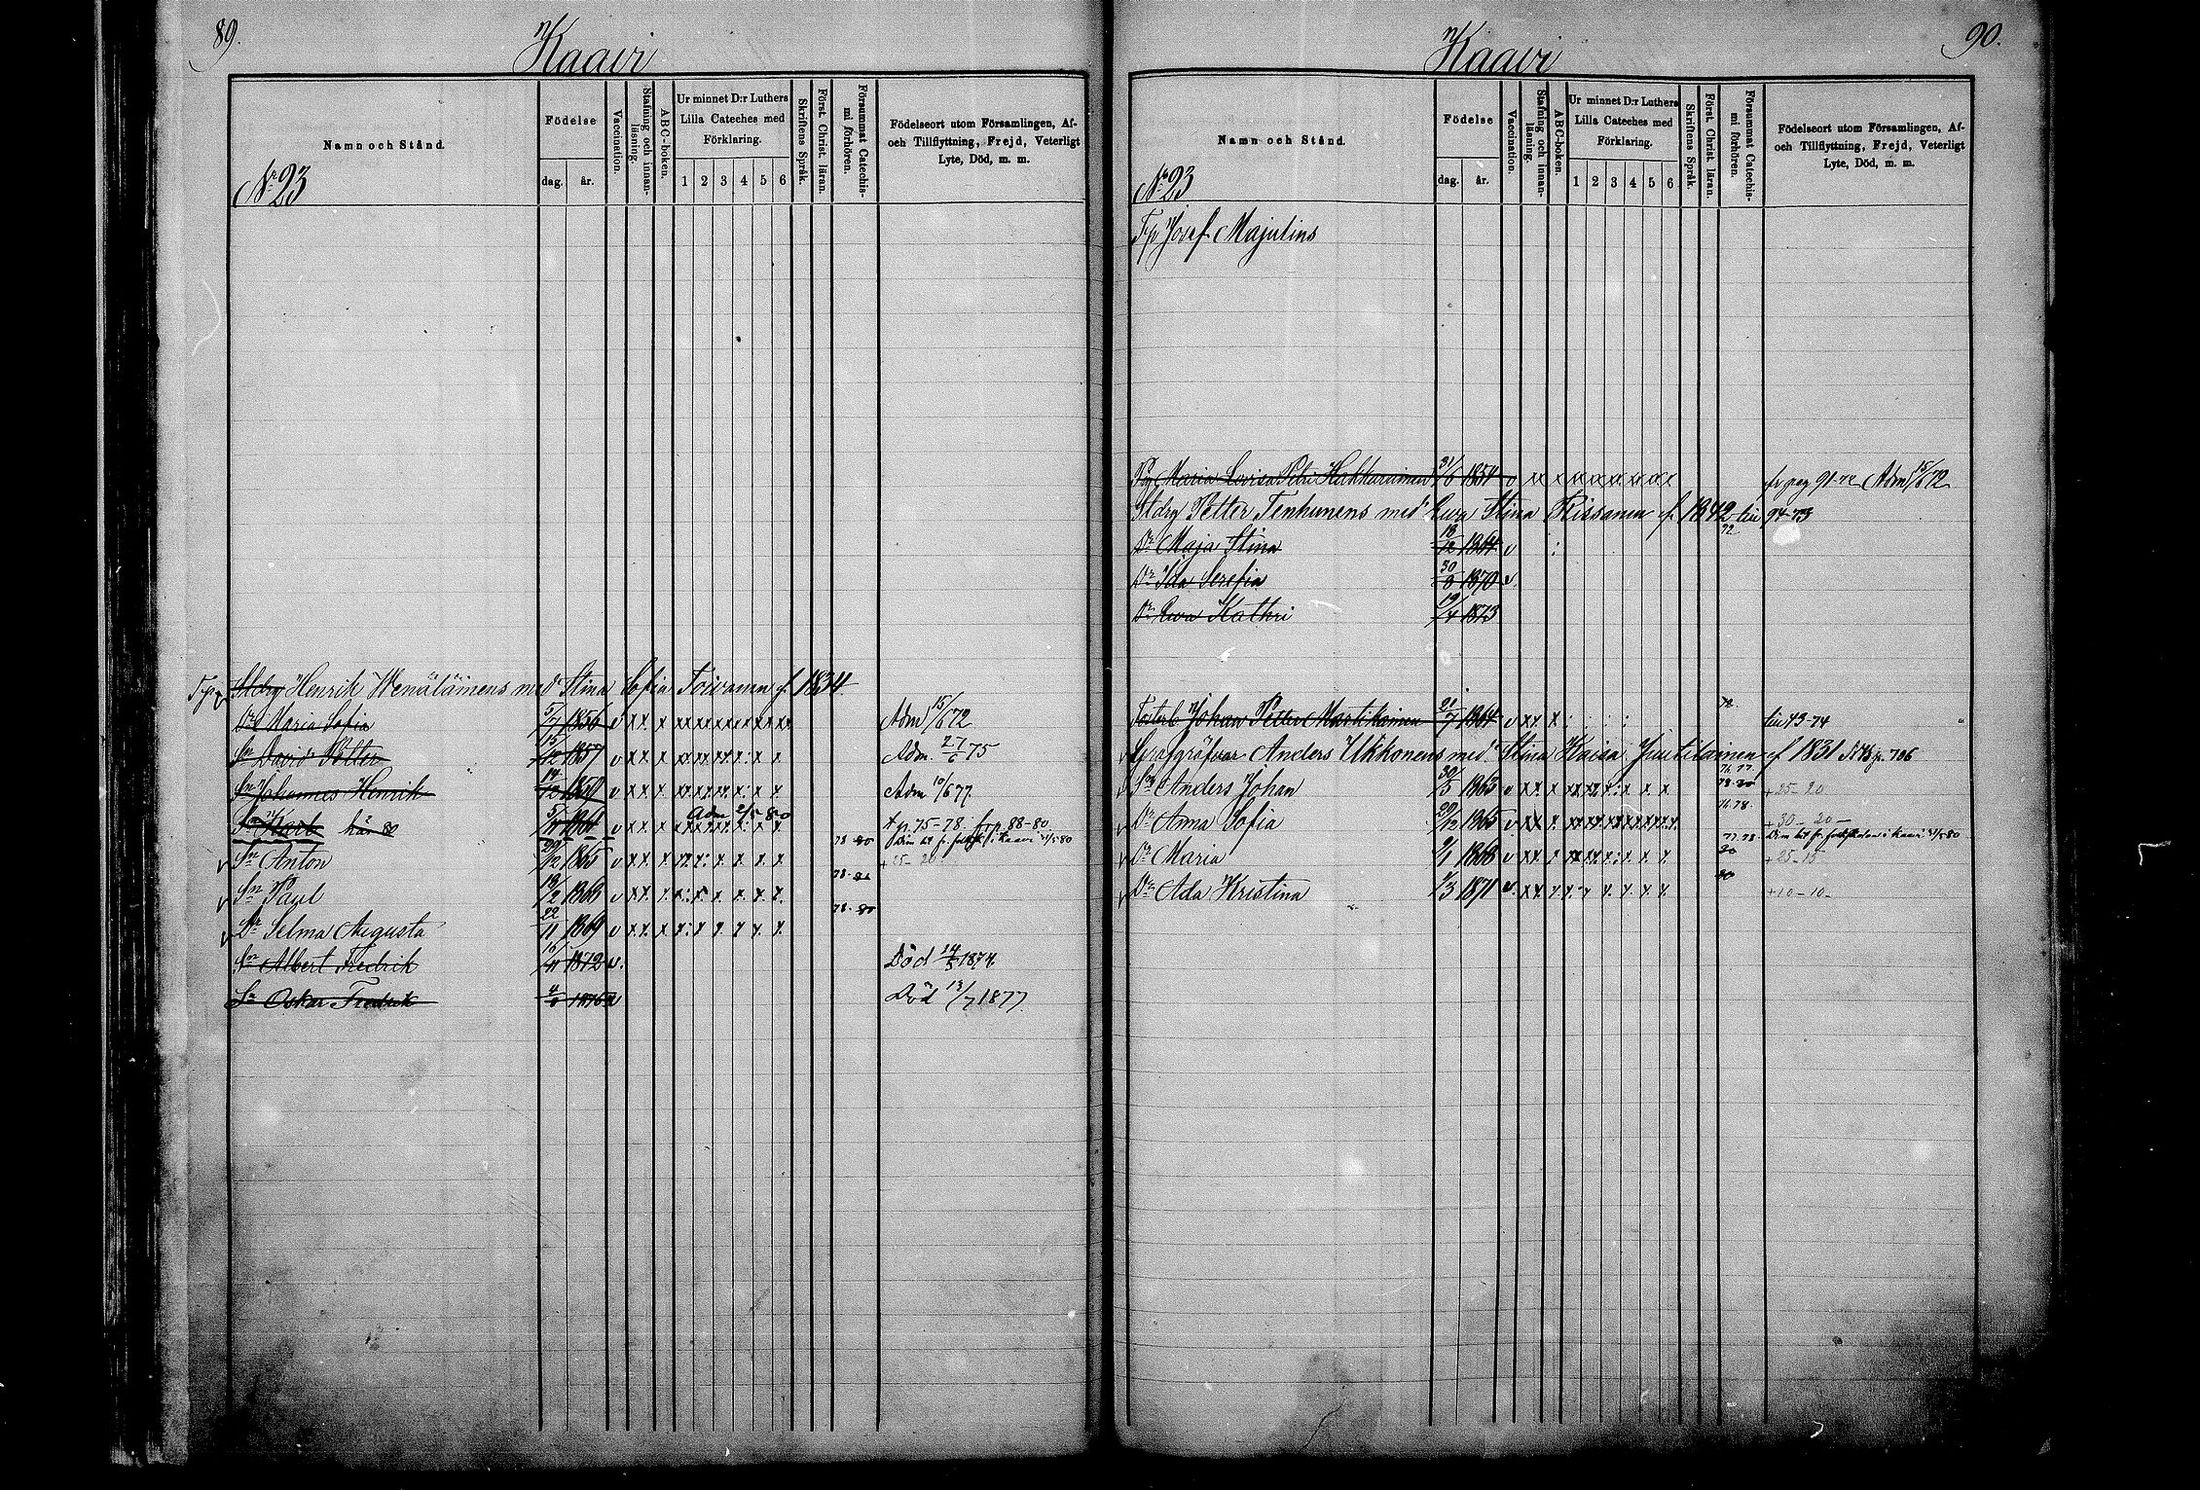 89.
Kaavi
Namn och Stånd.
Födelse
dag. år.
Vaccination.
Stafning och innanläsning.
ABC-boken.
Ur minnet D:r Luthers Lilla Cateches med Förklaring.
1 2 3 4 5 6
Skriftens Språk.
Först. Christ. läran.
Försummat Catechismi förhören.
Födelseort utom Församlingen, Af- och Tillflyttning, Frejd, Veterligt Lyte, Död, m. m.
Nr 23
Stdrg Henrik Wenäläinens med Stina Sofia Toivanen f. 1834
Dr Maria Sofia 5/7 1856 v Adm 15/6 72
Sn David Petter 15/12 1857 v Adm. 27/6 75
Sn Johannes Henrik 14/12 1859 v Adm 10/6 77
Sn Karl här 80 v Adm 2/5 80 p. 75-78 fr p 88-80
Sn Anton 29/12 1865 v 78-80
Sn Paul 19/2 1868 v 78-80
Dr Selma Augusta 22/11 1869 v 78-80
Sn Albert Fredrik 16/11 1872 v. Död 14/5 1874.
Sn Oskar Fredrik 1876 v Död 13/7 1877.
90.
Kaavi
Namn och Stånd.
Födelse
dag. år.
Vaccination.
Stafning och innanläsning.
ABC-boken.
Ur minnet D:r Luthers Lilla Cateches med Förklaring.
1 2 3 4 5 6
Skriftens Språk.
Först. Christ. läran.
Försummat Catechismi förhören.
Födelseort utom Församlingen, Af- och Tillflyttning, Frejd, Veterligt Lyte, Död, m. m.
Nr 23
Josef Majulins
Maria Lovisa Petri Hakkarainen 31/6 1854 v fr pag 91-72 Adm 15/6 72
Stdrg Petter Tenhunens med Eva Stina Rissanen f. 1842 94-73
Dr Maja Stina 18/12 1864 v 72
Dr Ida Serefia 30/8 1870 v.
Dr Eva Kathri 19/4 1873
Fosterb. Johan Petter Martikainen 21/7 1864 v 72. 43-74
Anders Ukkonens med Stina Kaisa Juutilainen f 1831
Son Anders Johan 30/3 1863 v +25-20
Dr Anna Sofia 29/12 1865 v 78. +30-20-
Dr Maria 9/1 1868 v 77. 78. 80 +25-15
Dr Ada Kristina 1/3 1871 v. 80 +10-10-